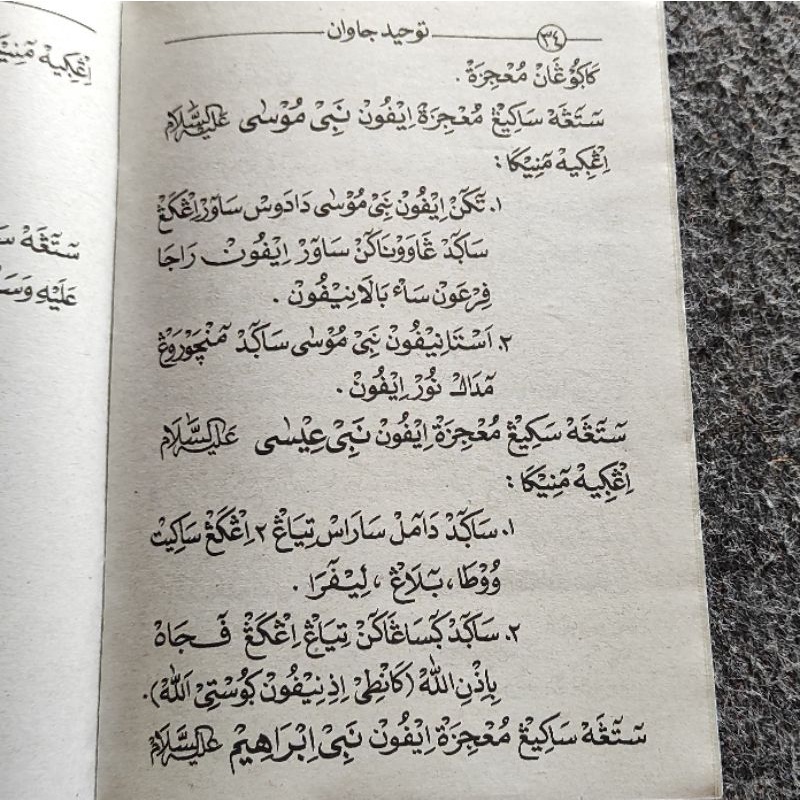 توحيد جاوان ٣٤
كَابَوْڠَانْ مُعْجِزَةْ .
سَتَڠَهْ سَاكِيڠْ مُعْجِزَةْ اِيْفُونْ نَبِيْ مُوْسٰى عَلَيْهِ السَّلَامْ
اِڠْڮِيهْ مَنِيْكَا :
١. تَكَنْ اِيْفُونْ نَبِيْ مُوْسٰى دَادَوْسْ سَاوَرْ اِڠْكَڠْ
سَاڮَدْ ڠَاوَوْنَاكَنْ سَاوَرْ اِيْفُونْ رَاجَا
فِرْعَوْنْ سَاءْ بَالَانِيْفُونْ .
٢. اَسْتَانِيْفُونْ نَبِيْ مُوْسٰى سَاڮَدْ مَنْچَوْرَوْڠْ
مَدَالْ نُوْرْ اِيْفُونْ .
سَتَڠَهْ سَكِيڠْ مُعْجِزَةْ اِيْفُونْ نَبِيْ عِيْسٰى عَلَيْهِ السَّلَامْ
اِڠْڮِيهْ مَنِيْكَا :
١. سَاڮَدْ دَامَلْ سَارَاسْ تِيَاڠْ ٢ اِڠْكَڠْ سَاكِيتْ
وُوْطَا، بَلَاڠْ، لِيْفْرَا .
٢. سَاڮَدْ ڮَسَاڠَاكَنْ تِيَاڠْ اِڠْكَڠْ فَجَاهْ
بِاِذْنِ اللّٰهْ (كَانْطِيْ اِذِنِيْفُونْ ڮُوْسْتِيْ اَللّٰهْ).
سَتَڠَهْ سَاكِيڠْ مُعْجِزَةْ اِيْفُونْ نَبِيْ اِبْرَاهِيْمْ عَلَيْهِ السَّلَامْ
اِڠْڮِيهْ
سَتَڠَهْ
عَلَيْهِ